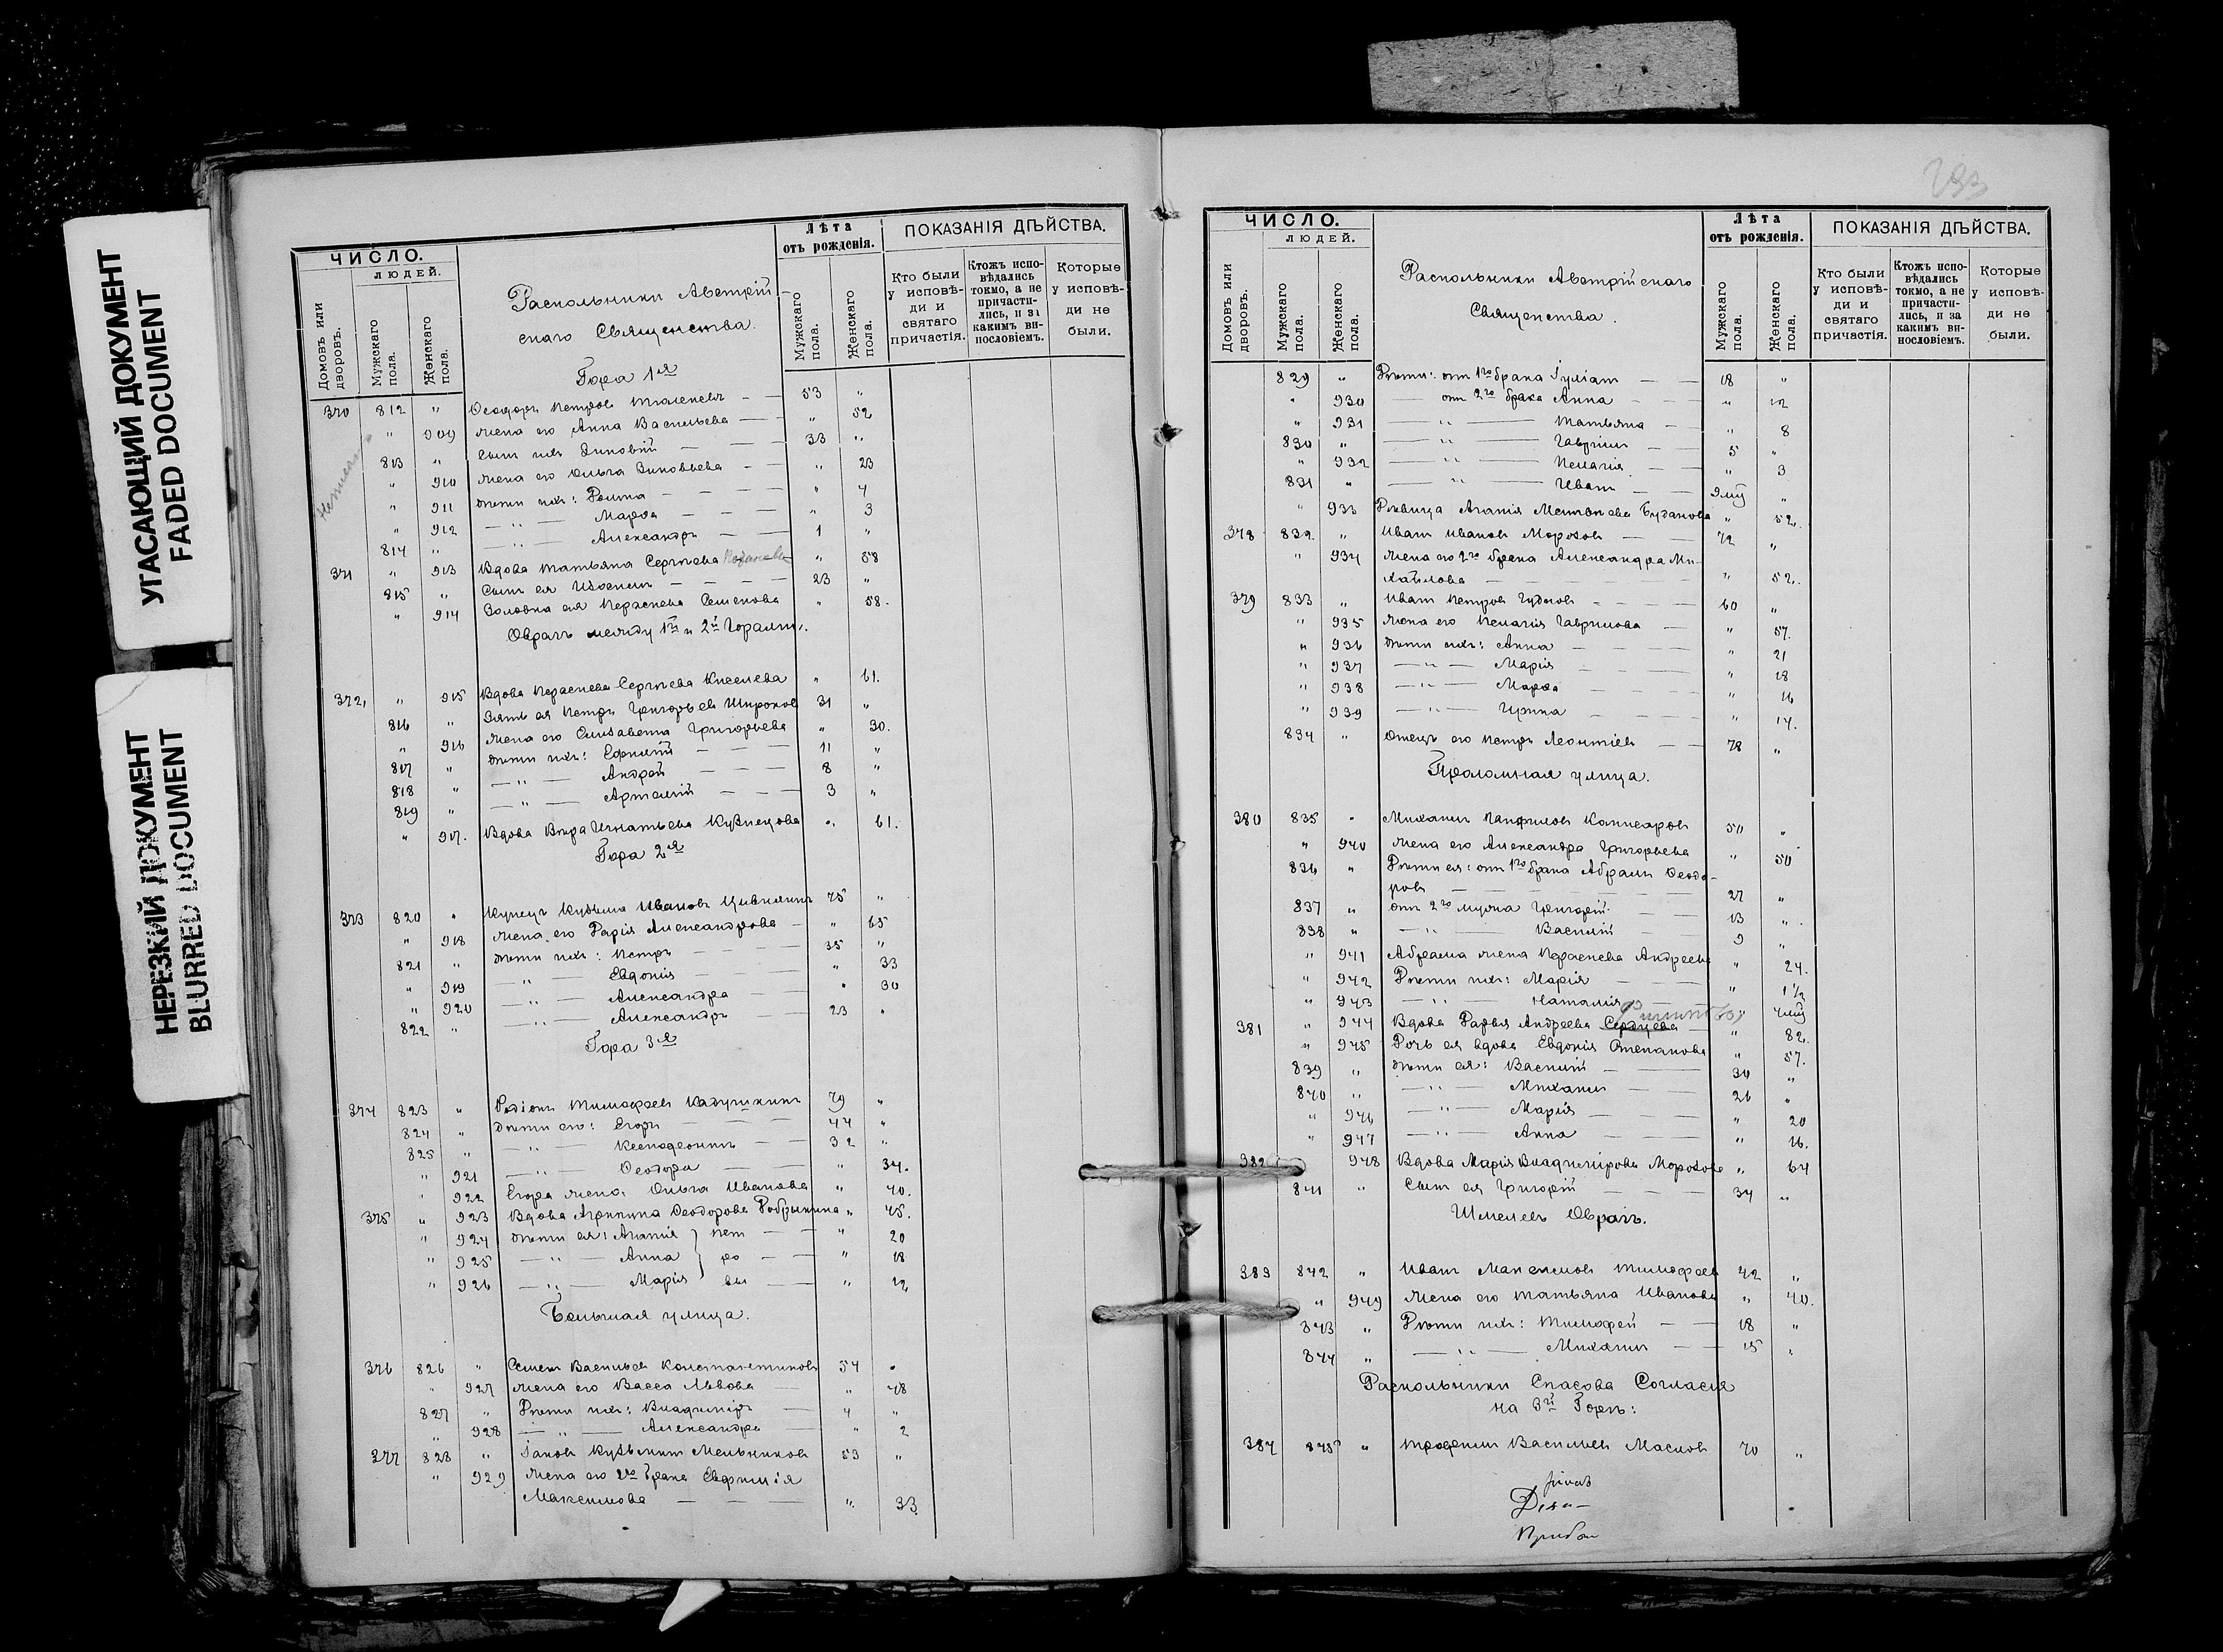 УГАСАЮЩИЙ ДОКУМЕНТ
FADED DOCUMENT
НЕРЕЗКИЙ ДОКУМЕНТ
BLURRED DOCUMENT
ЧИСЛО.
ЛЮДЕЙ.
Домовъ или дворовъ.
Мужскаго пола.
Женскаго пола.
Раскольники Австрій
скаго Священства.
Лѣта
отъ рожденія.
Мужскаго пола.
Женскаго пола.
ПОКАЗАНІЯ ДѢЙСТВА.
Кто были у исповѣди и святаго причастія.
Ктожъ исповѣдались токмо, а не причастились, и за какимъ винословіемъ.
Которые у исповѣди не были.
Гора 1я
370 812 " Ѳеодоръ Петровъ — 53 "
" 909 Жена его Анна Васильева — " 52
813 " Сынъ ихъ Зиновій — 33 "
" 910 Жена его Ольга Зиновьева — " 23
" 911 Дѣти ихъ: — " 4
" 912 —"— Марѳа — " 3
814 " —"— Александръ — 1 "
371 " 913 Вдова Татьяна Сергѣева " 58
815 " Сынъ ея — 23 "
" 914 Золовка ея Параскева Семенова " 58.
Оврагъ между 1й и 2й Горами.
372. " 915 Вдова Параскева Сергѣева Киселева " 61.
816 " Зять ея Петръ Григорьевъ Широковъ 31 "
" 916 Жена его Елисавета Григорьева " 30.
817 " Дѣти ихъ: Ефимій — 11 "
818 " —"— Андрей — 8 "
819 " —"— Артемій — 3 "
" 917. Вдова Вѣра Игнатьева Кузнецова " 61.
Гора 2я
373 820 " Купецъ Кузьма Ивановъ Цивилинъ 75 "
" 918 Жена его Дарія Александрова — " 65
821 " Дѣти ихъ: Петръ — 35 "
" 919 —"— Евдокія — " 33
" 920 —"— Александра — " 30
822 " —"— Александръ — 23 "
Гора 3я
374 823 " Родіонъ Тимофеевъ Кадушкинъ 79 "
824 " Дѣти его: Егоръ — 44 "
825 " —"— Ксенофонтъ — 32 "
" 921 —"— Ѳеодора — " 34.
" 922 Егора жена Ольга Иванова " 40.
375 " 923 Вдова Агрипина Ѳеодорова Добрынина " 45.
" 924 Дѣти ея: Агапія — " 20
" 925 —"— Анна — " 18
" 926 —"— Марія — " 12
Большая улица.
376 826 " Семенъ Васильевъ Константиновъ 54 "
" 927 Жена его Васса Львова — " 48
827 " Дѣти ихъ: Владиміръ — 4 "
" 928 —"— Александра — " 2
377 828 " Іаковъ Кузьминъ Мельниковъ 53 "
" 929 Жена его 2го брака Евфимія
Максимова — " 33.
ЧИСЛО.
ЛЮДЕЙ.
Домовъ или дворовъ.
Мужскаго пола.
Женскаго пола.
Раскольники Австрійскаго
Священства.
Лѣта
отъ рожденія.
Мужскаго пола.
Женскаго пола.
ПОКАЗАНІЯ ДѢЙСТВА.
Кто были у исповѣди и святаго причастія.
Ктожъ исповѣдались токмо, а не причастились, и за какимъ винословіемъ.
Которые у исповѣди не были.
829 " Дѣти: отъ 1го брака — 18 "
" 930 — отъ 2го брака Анна — " 12
" 931 —"— Татьяна — " 8
830 " —"— Гавріилъ — 5 "
" 932 —"— Пелагія — " 3
831 " —"— Иванъ — "
" 933 Дѣвица Агапія " 52.
378 832 " Иванъ Ивановъ Морозовъ — 72 "
" 934 Жена его 2го брака Александра Ми-
хайлова — " 52.
379 833 " Иванъ Петровъ — 60 "
" 935 Жена его Пелагія Гаврилова — " 57.
" 936 Дѣти ихъ: Анна — " 21
" 937 —"— Марія — " 18
" 938 —"— Марѳа — " 16
" 939 —"— Ирина — " 14.
834 " Отецъ его Петръ Леонтіевъ — 78 "
Проломная улица.
380 835 " Михаилъ Панфиловъ 50 "
" 940 Жена его Александра Григорьева " 50
836 " Дѣти ея: отъ 1го брака Абрамъ Ѳеодо-
ровъ — 27 "
837 " отъ 2го мужа Григорій — 13 "
838 " —"— Василій — 9 "
" 941 Абрама жена Параскева Андреева " 24.
" 942 Дѣти ихъ: Марія — " 1½
" 943 —"— Наталія — "
381 " 944 Вдова Дарья Андреева " 82.
" 945 Дочь ея вдова Евдокія Степанова " 57.
839 " Дѣти ея: Василій — 30 "
840 " —"— Михаилъ — 26 "
" 946 —"— Марія — " 20
" 947 —"— Анна — " 16.
382 948 Вдова Марія Владимірова Морозова " 64
841 " Сынъ ея Григорій — 34 "
Шмелевъ Оврагъ.
383 842 " Иванъ Максимовъ Тимофеевъ 42 "
" 949 Жена его Татьяна Иванова " 40.
843 " Дѣти ихъ: Тимофей — 18 "
844 " —"— Михаилъ — 15 "
Раскольники Спасова Согласія
на 3й Горѣ:
384 845 " Трофимъ Васильевъ Масловъ 70 "